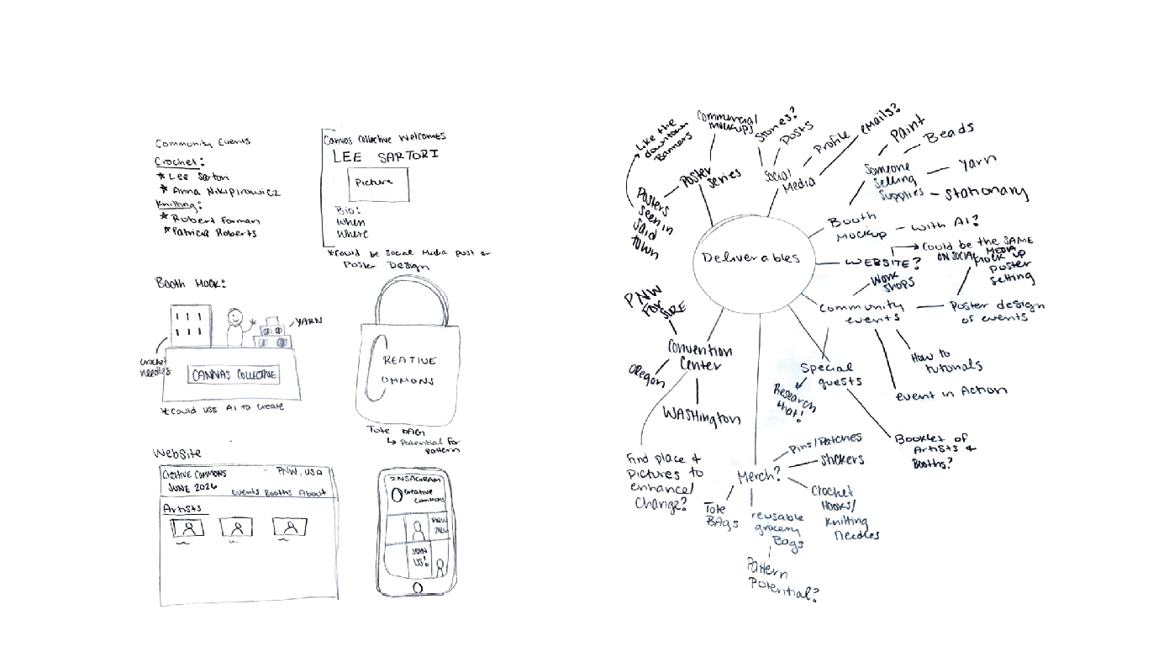 Community Events
Crochet:
* Lee Sartori
* Anna Nikipirowicz
Knitting:
* Robert Forman
* Patricia Roberts
Canvas Collective Welcomes
LEE SARTORI
Picture
Bio:
When
Where
*Could be Social Media post or
Poster Design
Booth Mock:
YARN
Crochet
needles
CANVAS COLLECTIVE
*Could use AI to create
CREATIVE
COMMONS
Tote BAG
↳ Potential for
pattern
Website
CREATIVE COMMONS
PNW, USA
JUNE 2026
Events Booths About
Artists
INSAGRAM
Creative
Commons
PNW
JOIN
US!
Deliverables
Poster
Series
Commercial
mockups
Like the
downtown
Banners
Posters
seen in
said
town
Social
Media
Stories?
Posts
Profile
emails?
Booth
Mockup
with AI?
Someone
Selling
Supplies
Paint
Beads
Yarn
Stationary
WEBSITE?
Could be the SAME
ON SOCIAL MEDIA
Mock up
poster
setting
Community
events
Work
shops
Poster design
of events
How to
tutorials
event in Action
Special
guests
Research
that!
Booklet of
Artists &
Booths?
Merch?
Pins/Patches
Stickers
Crochet
Hooks/
Knitting
Needles
reusable
grocery
Bags
Pattern
Potential?
Tote
BAgs
Convention
Center
PNW
FOR
SURE
Oregon
WASHington
Find place &
Pictures to
enhance/
Change?